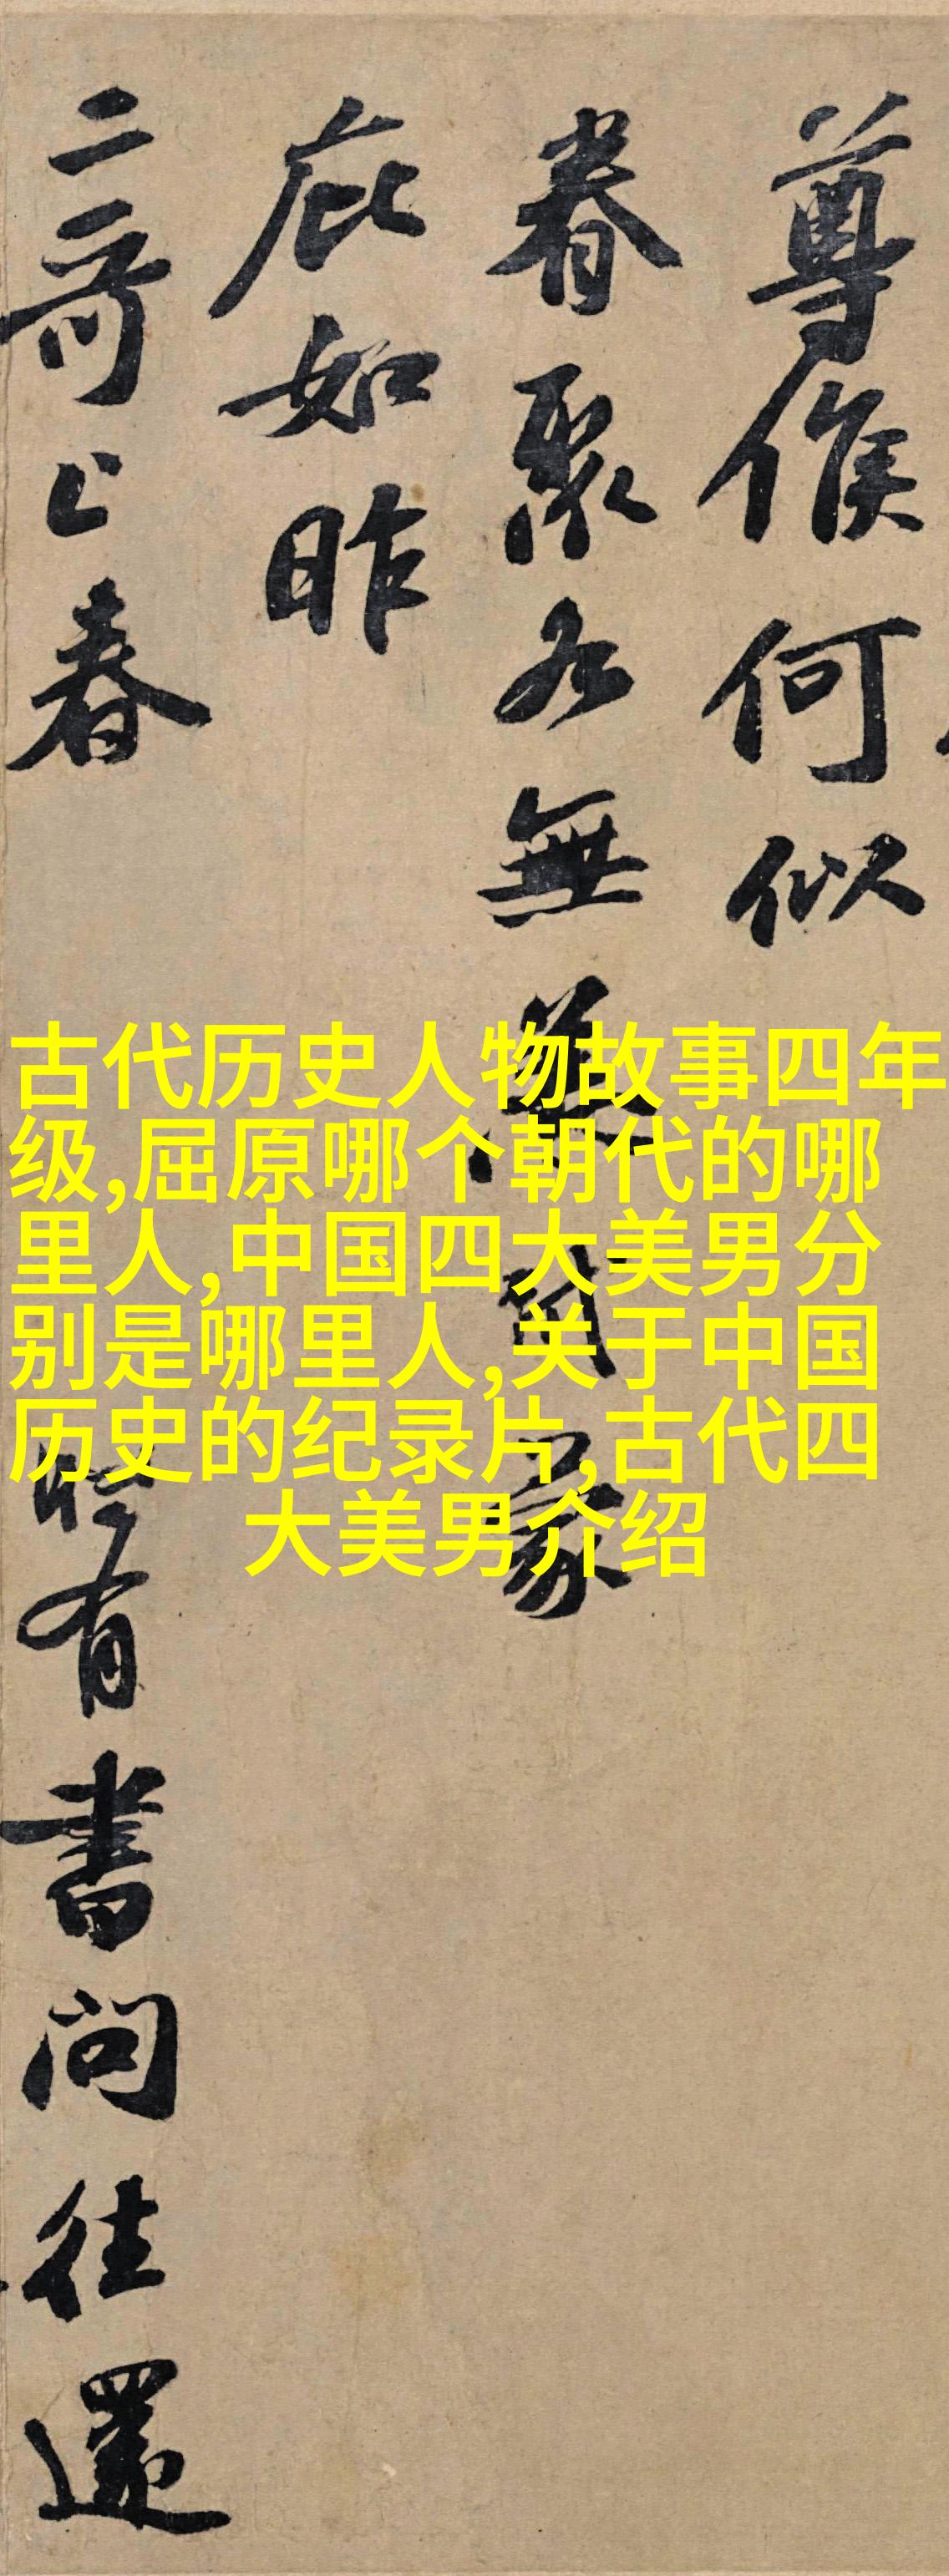 尊候何似
眷聚各無恙同蒙
庇如昨
二哥上春時有書問往還
古代历史人物故事四年
级,屈原哪个朝代的哪
里人,中国四大美男分
别是哪里人,关于中国
历史的纪录片,古代四
大美男介绍